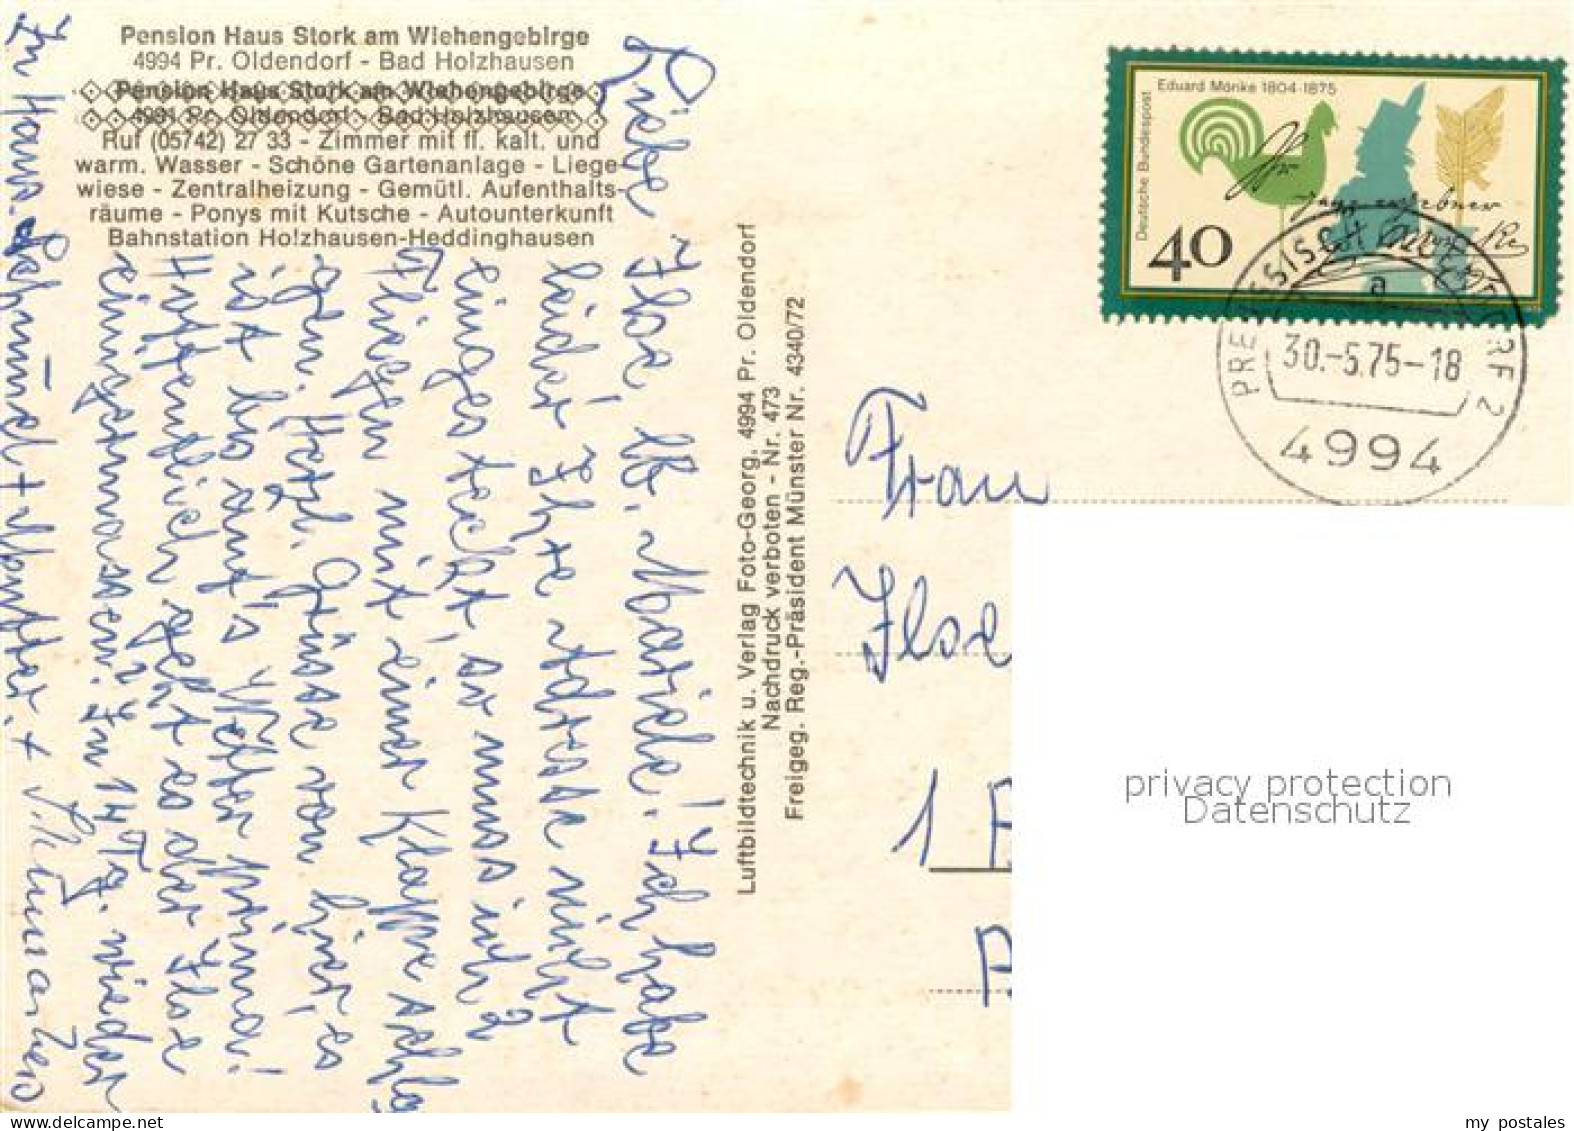 Pension Haus Stork am Wiehengebirge
4994 Pr. Oldendorf - Bad Holzhausen
Pension Haus Stork am Wiehengebirge
4991 Pr. Oldendorf - Bad Holzhausen
Ruf (05742) 27 33 - Zimmer mit fl. kalt. und
warm. Wasser - Schöne Gartenanlage - Liege-
wiese - Zentralheizung - Gemütl. Aufenthalts-
räume - Ponys mit Kutsche - Autounterkunft
Bahnstation Holzhausen-Heddinghausen
Liebe Ilse, lb. Mariche! Ich habe
leider Ihre Adresse nicht
eingesteckt, so muss ich 2
Fliegen mit einer Klappe schla
gen. Herzl. Grüsse von hier, es
ist das Wetter prima!
Hoffentlich geht es der Ilse
einigermassen. In 14 Tg. wieder
In
Luftbildtechnik u. Verlag Foto-Georg, 4994 Pr. Oldendorf
Nachdruck verboten - Nr. 473
Freigeg. Reg.-Präsident Münster Nr. 4340/72
Eduard Mörike 1804-1875
Deutsche Bundespost
40
PREUSSISCH OLDENDORF 2
a
30.-5.75-18
4994
Frau
Ilse
1
privacy protection
Datenschutz
my postales